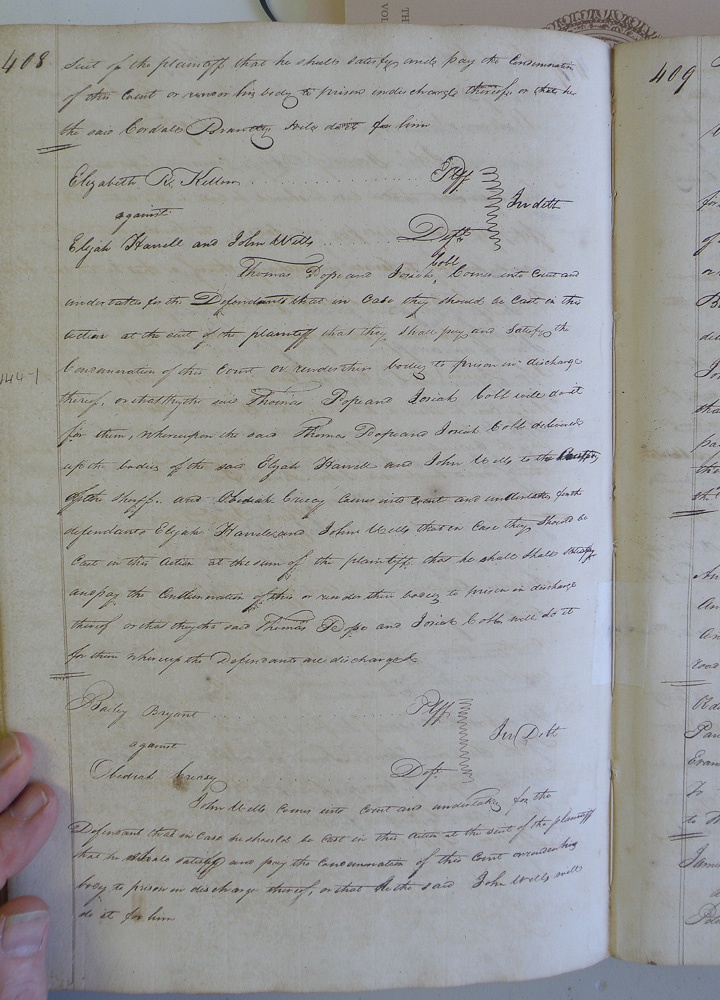 408
suit of the plaintiff that he shall satisfy and pay the Condemnation
of this Court or render his body to prison in discharge thereof, or that he
the said Cordale Brantley will do it for him
Elizabeth R. Killum Plff
against In debt
Elijah Harrell and John Wells Defts
Thomas Pope and Josiah Cobb Comes into Court and
undertakes for the Defendants that in Case they should be Cast in this
action at the suit of the plaintiff that they shall pay and satisfy the
Condemnation of this Court or render their bodies to prison in discharge
thereof, or that they the said Thomas Pope and Josiah Cobb will do it
for them, whereupon the said Thomas Pope and Josiah Cobb delivered
up the bodies of the said Elijah Harrell and John Wells to the
of the Sheriff. and Obediah Creecy Comes into Court and undertakes for the
defendants Elijah Harrell and John Wells that in Case they should be
Cast in this action at the sum of the plaintiff that he shall shall satisfy
and pay the Condemnation of this or render their bodies to prison in discharge
thereof or that they the said Thomas Pope and Josiah Cobb will do it
for them whereup the Defendants are discharged
Bailey Bryant Plff
against In Debt
Obediah Creecy Deft
John Wells Comes into Court and undertakes for the
Defendant that in Case he should be Cast in this action at the suit of the plaintiff
that he shall satisfy and pay the Condemnation of this Court or render his
body to prison in discharge thereof, or that he the said John Wells will
do it for him
144-1
409